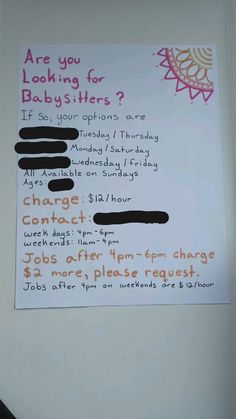 Are you
Looking for
Babysitters?
If So, your options are
Tuesday / Thursday
Monday / Saturday
Wednesday / Friday
All Available on Sundays
Ages:
Charge: $12/hour
Contact:
week days: 4pm-6pm
weekends: 11am-4pm
Jobs after 4pm-6pm charge
$2 more, please request.
Jobs after 4pm on weekends are $12/hour